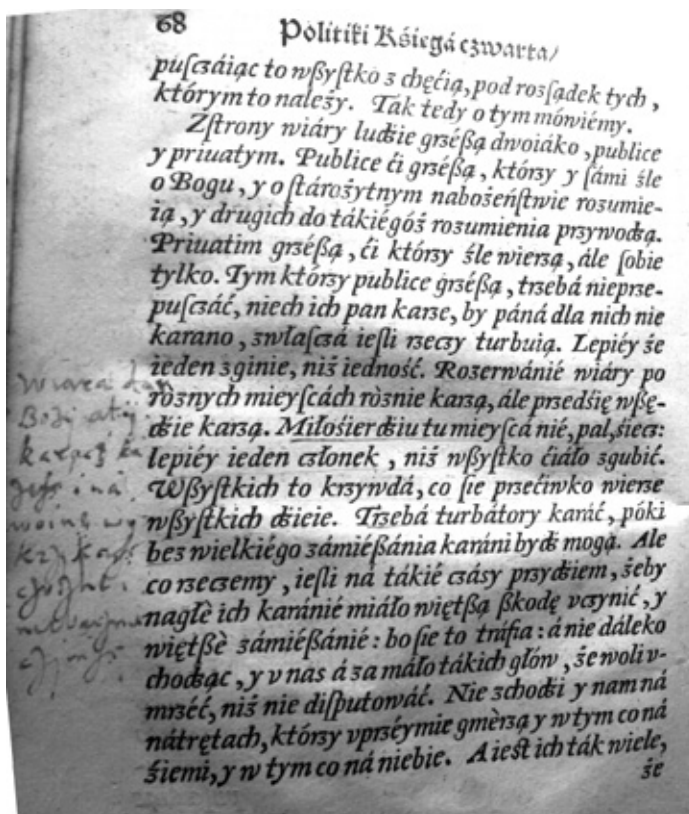 68 Polityki Kśięgá czwarta/
puſczáiąc to wßyſtko z chęćią, pod rozſądek tych,
którym to należy. Ták tedy o tym mówiémy.
Zſtrony wiáry ludźie grzéßą dwoiáko, publice
y priuatym. Publice ći grzéßą, którzy y ſámi źle
o Bogu, y o ſtárożytnym nabożeńſtwie rozumie-
ią, y drugich do tákiégóż rozumienia przywodzą.
Priuatim grzéßą, ći którzy źle wierzą, ále ſobie
tylko. Tym którzy publice grzéßą, trzebá nieprze-
puſczáć, niech ich pan karze, by páná dla nich nie
karano, zwłaſczá ieſli rzeczy turbuią. Lepiéy że
ieden zginie, niż iedność. Rozerwánié wiáry po
ròznych mieyſcách ròznie karzą, ále przedśię wßę-
dźie karzą. Miłośierdźiu tu mieyſcá nié, pal, śiecz:
lepiéy ieden członek, niż wßyſtko ćiáło zgubić.
Wßyſtkich to krzywdá, co ſie przećiwko wierze
wßyſtkich dźieie. Trzebá turbátory karáć, póki
bez wielkiégo zámiéßánia karáni bydź mogą. Ale
co rzeczemy, ieſli ná tákié czásy przydźiem, żeby
nagłè ich karánié miáło więtßą ßkodę vczynić, y
więtßè zámiéßánié: bo ſie to tráfia: á nie dáleko
chodząc, y v nas á za máło tákich głów, że woli v-
mrzéć, niż nie diſputowáć. Nie zchodźi y nam ná
nátrętach, którzy vprzéymie gmèrzą y w tym co ná
źiemi, y w tym co ná niebie. A ieſt ich ták wiele,
że